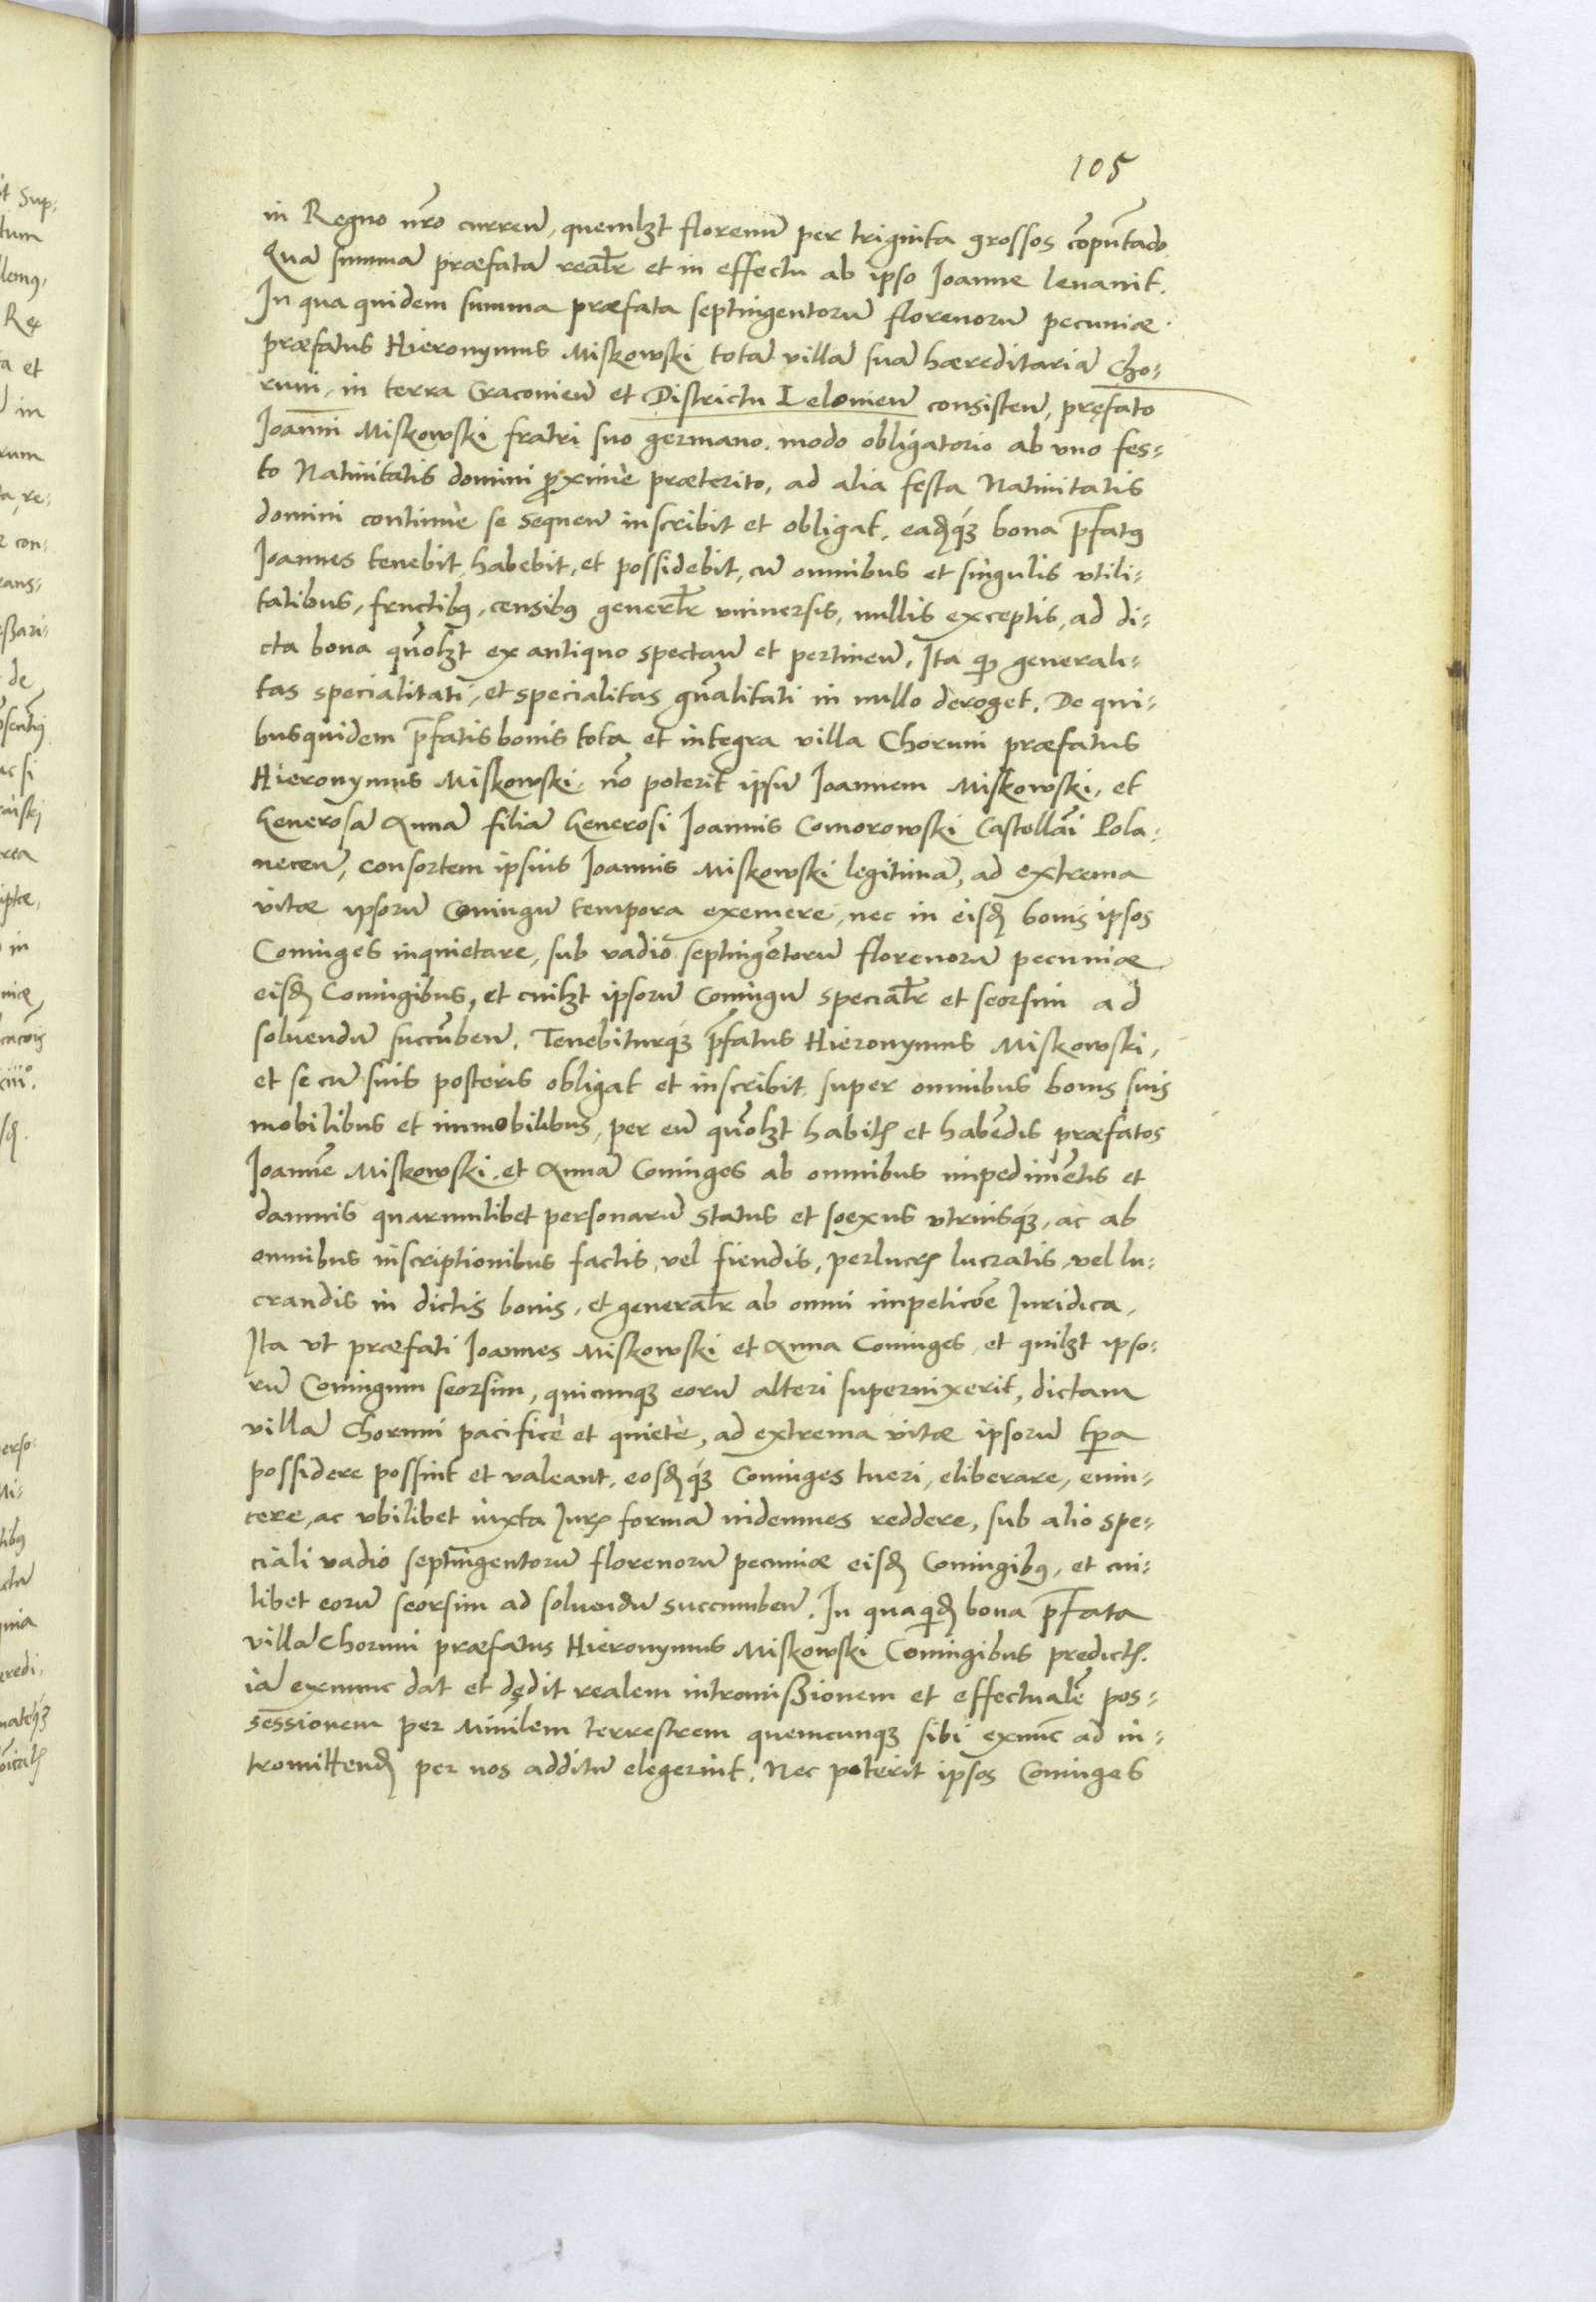 105
in Regno nr̃o curreñ, quemlꝫt florenũ per triginta grossos cõpũtado.
Quã summã præfatã realr̃ et in effectu ab ipso Joanne leuauit.
In qua quidem summa præfata septingentorũ florenorũ pecuniæ
præfatus Hieronymus Miskowski totã villã suã hæreditariã Cho-
rum, in terra Cracouieñ et Districtu Lelouieñ consisteñ, pręfato
Joanni Miskowski fratri suo germano, modo obligatorio ab vno fes-
to Natiuitatis domini ꝓximè præterito, ad alia festa Natiuitatis
domini continuè se sequeñ inscribit et obligat, eadꝗꝫ bona p̃fatꝰ
Joannes tenebit, habebit, et possidebit, cũ omnibus et singulis vtili-
tatibus, fructibꝰ, censibꝰ generalr̃ vniuersis, nullis exceptis, ad di-
cta bona quõlꝫt ex antiquo spectañ et pertineñ, Ita ꝙ generali-
tas specialitati, et specialitas gñalitati in nullo deroget. De qui-
busquidem p̃fatis bonis tota et integra villa Chorum præfatus
Hieronymus Miskowski, nõ poterit ipsũ Joannem Miskowski, et
Generosã Annã filiã Generosi Joannis Comorowski Castellãi Pola-
neceñ, consortem ipsius Joannis Miskowski legitimã, ad extrema
vitæ ipsorũ Coniugũ tempora exemere, nec in eisd̃ bonis ipsos
Coniuges inquietare, sub vadio septingẽtorũ florenorũ pecuniæ
eisd̃ Coniugibus, et cuilꝫt ipsorũ Coniugũ specialr̃ et seorsim ad
soluendũ succũbeñ. Tenebiturqꝫ p̃fatus Hieronymus Miskowski,
et se cũ suis posteris obligat et inscribit, super omnibus bonis suis
mobilibus et immobilibus, per eũ quõlꝫt habitꝭ et habẽdis præfatos
Joannẽ Miskowski, et Annã Coniuges ab omnibus impedimẽtis et
damnis quarumlibet personarũ status et sexus vtriusqꝫ, ac ab
omnibus inscriptionibus factis, vel fiendis, perlucrꝭ lucratis, vel lu-
crandis in dictis bonis, et generalr̃ ab omni impeticõe Juridica,
Ita vt præfati Joannes Miskowski et Anna Coniuges, et quilꝫt ipso-
rũ Coniugum seorsim, quicunqꝫ eorũ alteri superuixerit, dictam
villã Chorum pacificè et quietè, ad extrema vitæ ipsorũ tp̃a
possidere possint et valeant, eosd̃qꝫ Coniuges tueri, eliberare, euin-
cere, ac vbilibet iuxta Jurꝭ formã indemnes reddere, sub alio spe-
ciali vadio septingentorũ florenorũ pecuniæ eisd̃ Coniugibꝰ, et cui-
libet eorũ seorsim ad soluendũ succumbeñ. In quaqid̃ bona p̃fata
villã Chorum præfatus Hieronymus Miskowski Coniugibus predictꝭ
iã exnunc dat et dędit realem intromißionem et effectualẽ pos-
sessionem per Minĩlem terrestrem quemcunqꝫ sibi exnũc ad in-
tromittend̃ per nos additũ elegerint. Nec poterit ipsos Coniuges